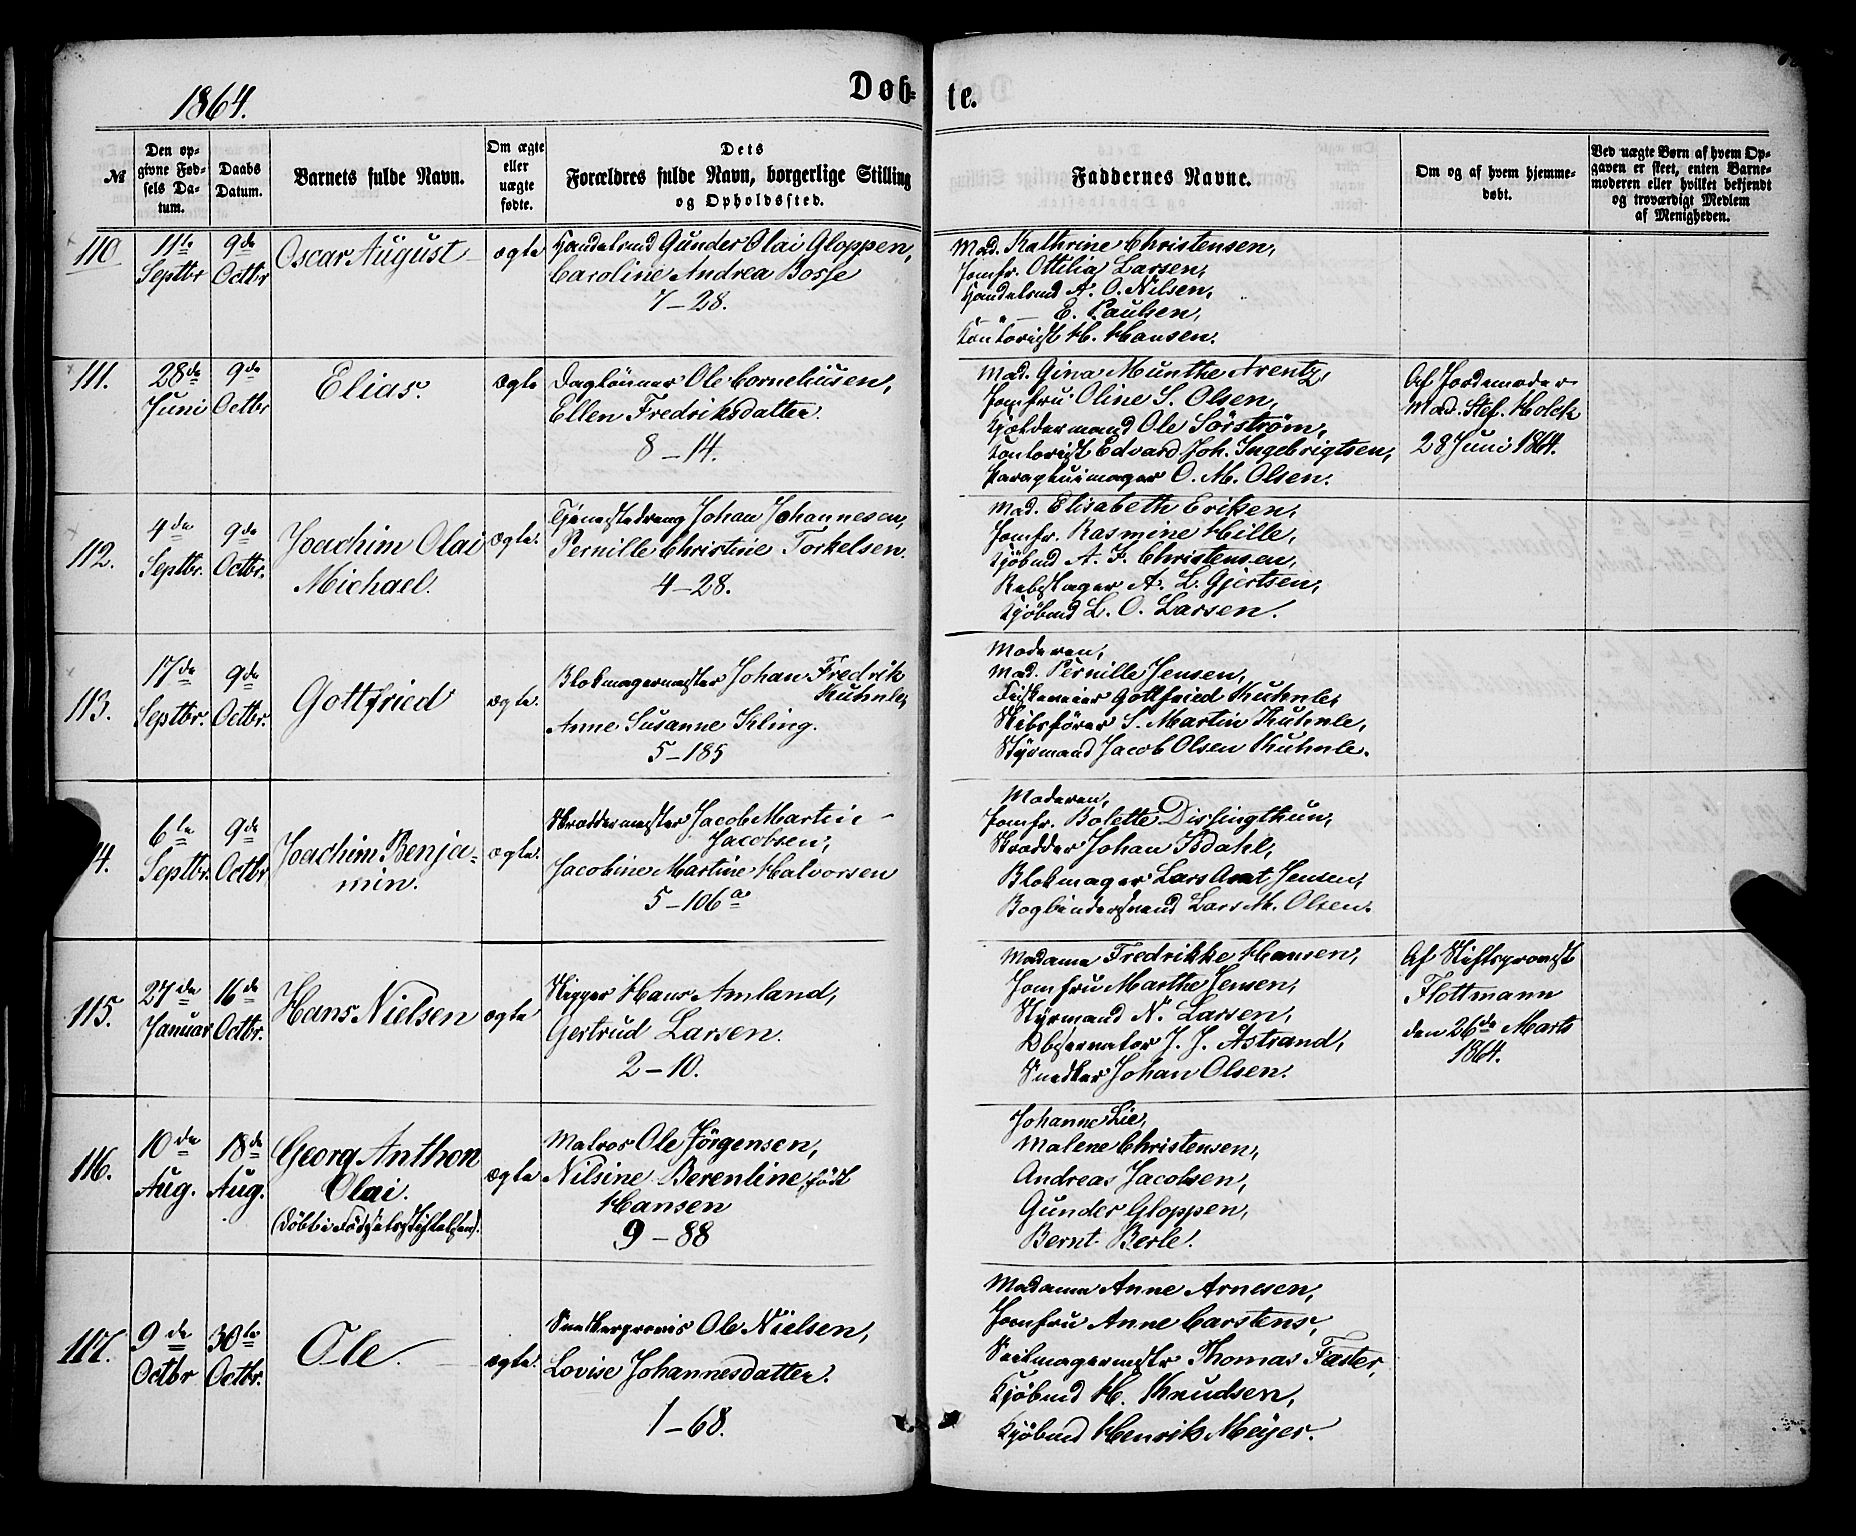 1864.
Døb-
te.
№
Den op-
givne Fød-
sels Da-
tum.
Daabs
Datum.
Barnets fulde Navn.
Om ægte
eller
uægte
fødte.
Dets
Forældres fulde Navn, borgerlige Stilling
og Opholdssted.
Faddernes Navne.
Om og af hvem hjemme-
døbt.
Ved uægte Børn af hvem Op-
gaven er skeet, enten Barne-
moderen eller hvilket bekjendt
og troværdigt Medlem
af Menigheden.
110.
11te
Septbr
9de
Octbr
Oscar August
ægte
Handelsmd Gunder Olai Gloppen,
Caroline Andrea Bosse
7-28.
Mad. Kathrine Christensen,
Jomfr. Ottilia Larsen,
Handelsmd A. O. Nilsen,
— " — E. Paulsen,
Kontorist H. Hansen.
111.
28de
Juni
9de
Octbr
Elias.
ægte
Dagtønner Ole Corneliusen,
Ellen Fredriksdatter.
8-14.
Mad. Gina Munthe Arentz,
Jomfru Oline S. Olsen,
Kjeldermand Ole Sörström,
Kontorist Edvard Joh. Ingebrigtsen,
Paraplüimager O. M. Olsen.
Af Jordemoder
Mad. Stef. Holck
28 Juni 1864.
112.
4de
Septbr.
9de
Octbr.
Joachim Olai
Michael.
ægte.
Tjenestedreng Johan Johannesen,
Pernille Christine Torkelsen.
4-28.
Mad. Elisabeth Eriksen,
Jomfr. Rasmine Hille,
Kjöbmd A. F. Christensen,
Rebslager A. L. Gjertsen,
Kjöbmd L. O. Larsen.
113.
17de
Septbr.
9de
Octbr.
Gottfried
ægte.
Blokmagermester Johan Fredrik
Kuhnle,
Anne Susanne Kling.
5-185
Moderen,
Mad. Pernille Jensen,
Fiskeveier Gottfried Kuhnle,
Skibsförer S. Martin Kuhnle,
Styrmand Jacob Olsen Kuhnle.
4.
6te
Septbr.
9de
Octbr
Joachim Benja-
min.
ægte.
Skreddermester Jacob Martin
Jacobsen,
Jacobine Martine Halvorsen
5-106a
Moderen,
Jomfr. Bolette Dissingthun,
Skredder Johan Isdahl,
Blokmager Lars Arnt Jensen,
Bogbindersvend Lars M. Olsen.
115.
27de
Januar
16de
Octbr.
Hans Nielsen
ægte
Rigger Hans Amland,
Gertrud Larsen.
2-10.
Madame Fredrikke Hansen,
Jomfru Marthe Jensen,
Styrmand N. Larsen,
Observator J. J. Astrand,
Snedker Johan Olsen.
Af Stiftsprovst
Flottmann
den 26de Marts
1864.
116.
10de
Aug.
18de
Aug.
Georg Anthon
Olai.
(Døbt i Fødselsstiftelsen).
ægte
Matros Ole Jörgensen,
Nilsine Berentine, født
Hansen
9-88
Johanne Lie,
Malene Christensen,
Andreas Jacobsen,
Gunder Gloppen,
Bernt Berle.
117.
9de
Octbr
30te
Octbr.
Ole.
ægte.
Snedkersvend Ole Nielsen,
Lovise Johannesdatter.
1-68.
Madame Anne Arnesen,
Jomfru Anne Carstens,
Seilmagermestr Thomas Faster,
Kjöbmd H. Knudsen,
Kjöbmd Henrik Meyer.